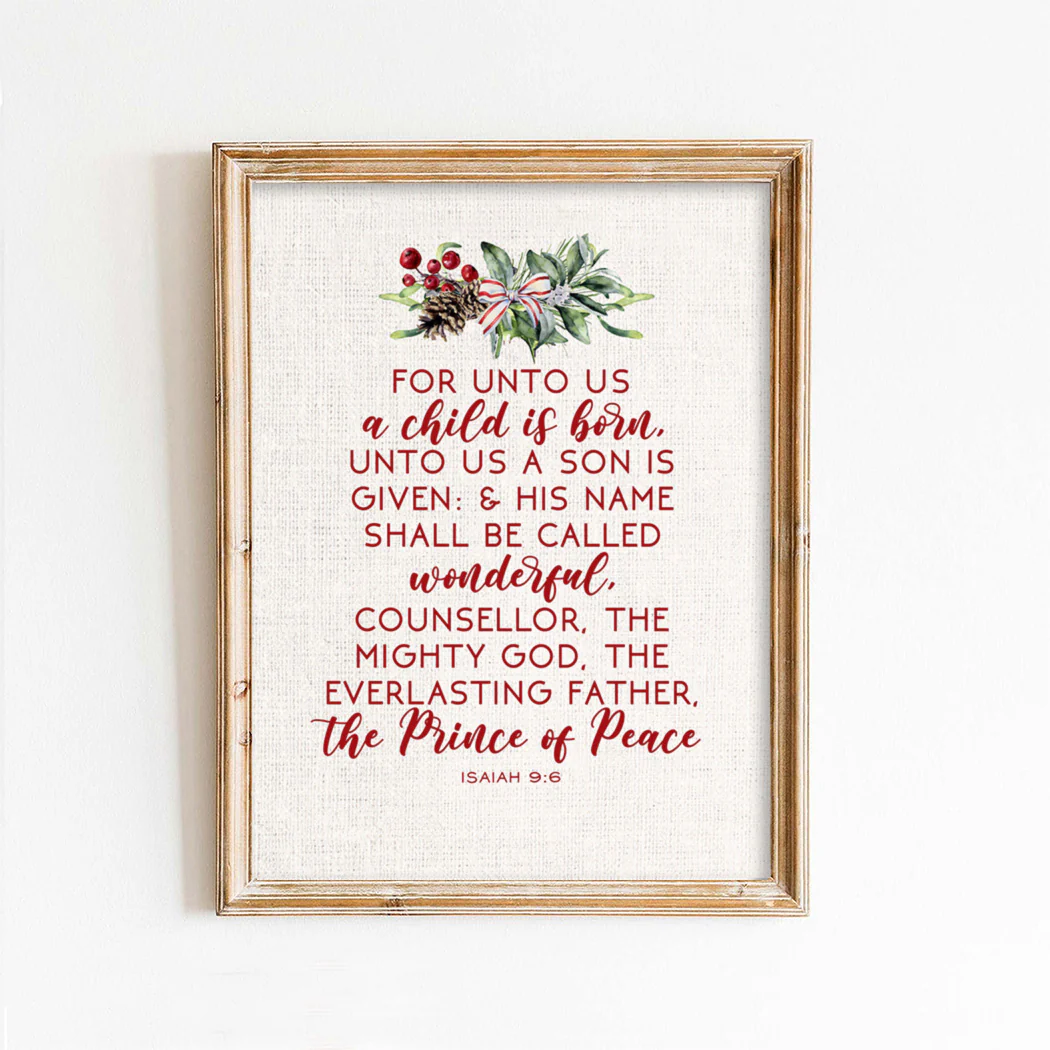 FOR UNTO US
a child is born,
UNTO US A SON IS
GIVEN: & HIS NAME
SHALL BE CALLED
wonderful,
COUNSELLOR, THE
MIGHTY GOD, THE
EVERLASTING FATHER,
the Prince of Peace
ISAIAH 9:6